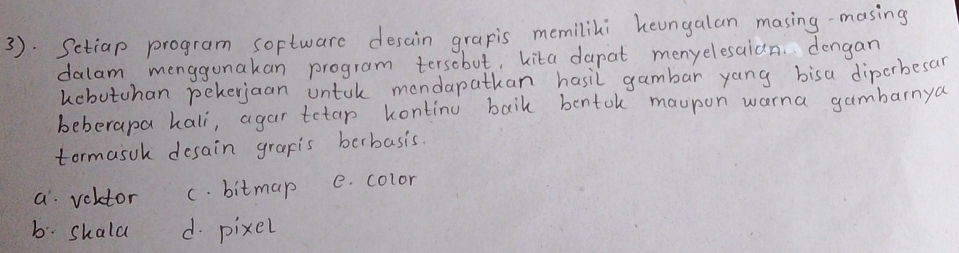 3). Setiap program software desain grafis memiliki keungalan masing-masing
dalam menggunakan program tersebut, kita dapat menyelesaian dengan
kebutuhan pekerjaan untuk mendapatkan hasil gambar yang bisa diperbesar
beberapa kali, agar tetap kontinu baik bentuk maupun warna gambarnya
termasuk desain grafis berbasis.
a. vektor c. bitmap e. color
b. skala d. pixel